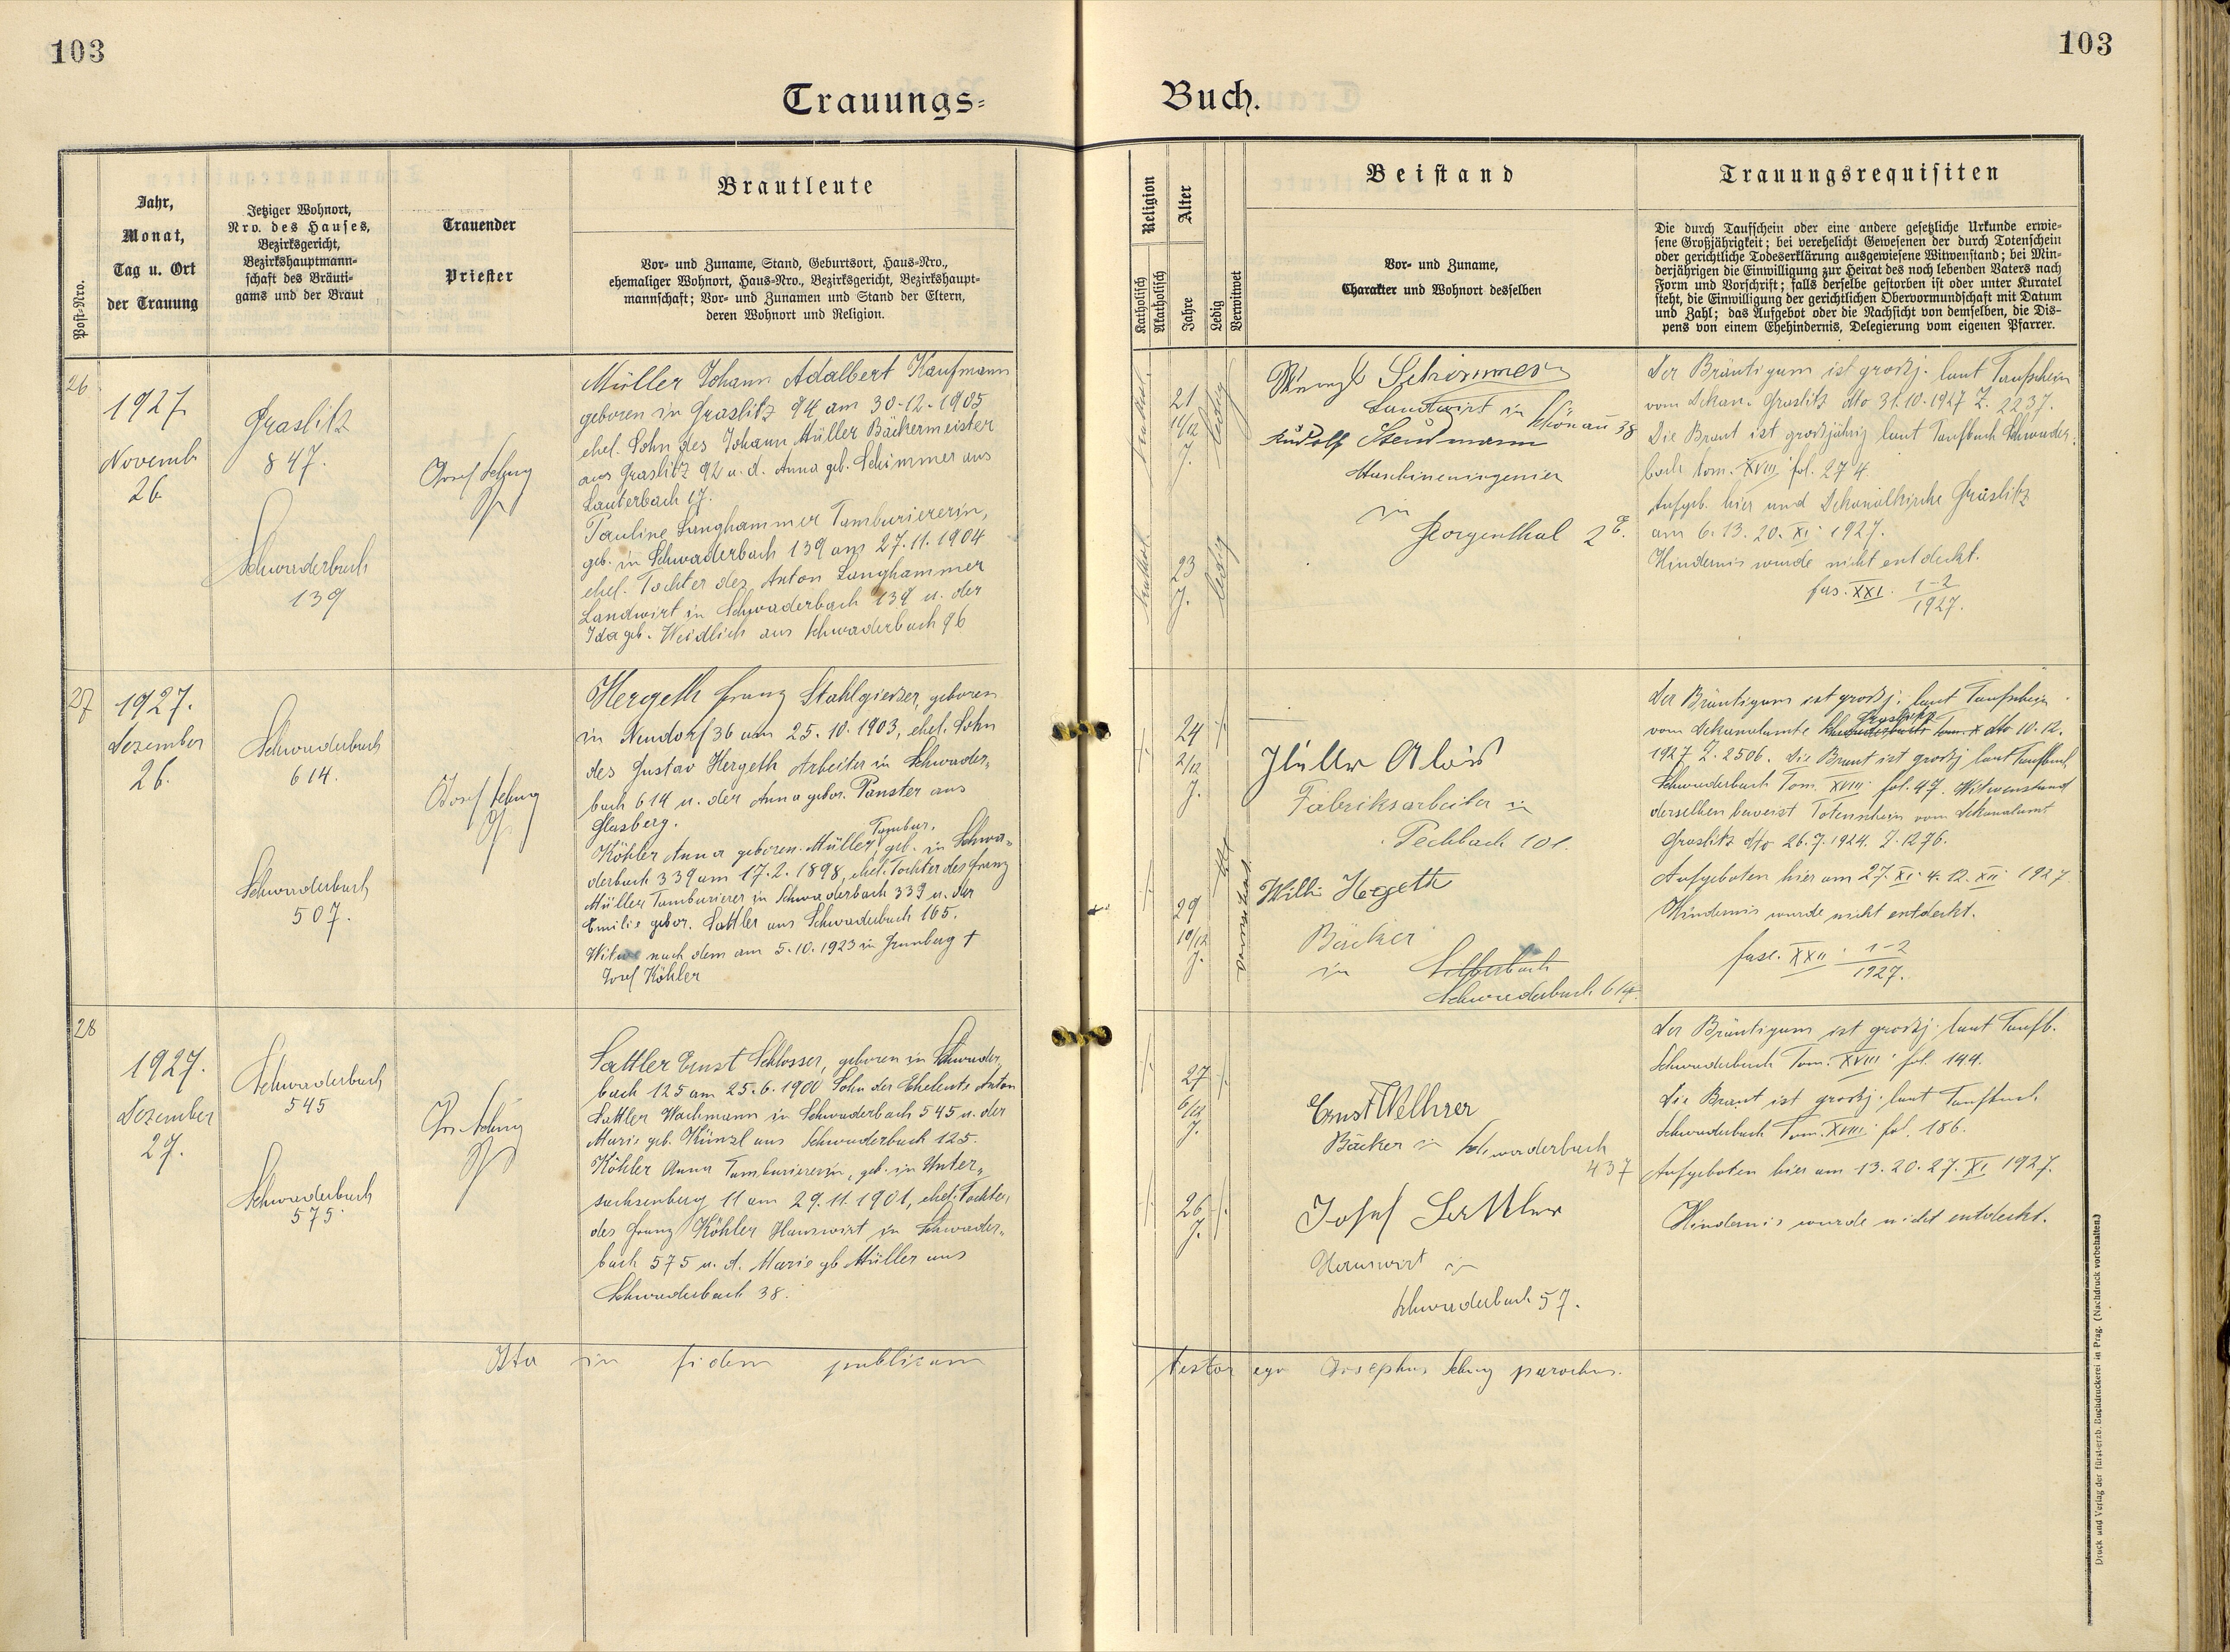 103
103
Trauungs-
Buch.
Post-Nro.
Jahr,
Monat,
Tag u. Ort
der Trauung
Jetziger Wohnort,
Nro. des Hauses,
Bezirksgericht,
Bezirkshauptmann-
schaft des Bräuti-
gams und der Braut
Trauender
Priester
Brautleute
Vor- und Zuname, Stand, Geburtsort, Haus-Nro.,
ehemaliger Wohnort, Haus-Nro., Bezirksgericht, Bezirkshaupt-
mannschaft; Vor- und Zunamen und Stand der Eltern,
deren Wohnort und Religion.
Religion
Katholisch
Akatholisch
Alter
Jahre
Ledig
Verwitwet
Beistand
Vor- und Zuname,
Charakter und Wohnort desselben
Trauungsrequisiten
Die durch Taufschein oder eine andere gesetzliche Urkunde erwie-
sene Großjährigkeit; bei verehelicht Gewesenen der durch Totenschein
oder gerichtliche Todeserklärung ausgewiesene Witwenstand; bei Min-
derjährigen die Einwilligung zur Heirat des noch lebenden Vaters nach
Form und Vorschrift; falls derselbe gestorben ist oder unter Kuratel
steht, die Einwilligung der gerichtlichen Obervormundschaft mit Datum
und Zahl; das Aufgebot oder die Nachsicht von demselben, die Dis-
pens von einem Ehehindernis, Delegierung vom eigenen Pfarrer.
26
1927
Novemb.
26
Graslitz
847.
Schwaderbach
139
Josef
Müller Johann Adalbert Kaufmann
geboren in Graslitz 94 am 30.12.1905
ehel. Sohn des Johann Müller Bäckermeister
aus Graslitz 92 u. d. Anna geb. Schimmer aus
Lauterbach 17.
Pauline Langhammer Tamburiererin,
geb. in Schwaderbach 139 am 27.11.1904
ehel. Tochter des Anton Langhammer
Landwirt in Schwaderbach 139 u. der
Ida geb. Weidlich aus Schwaderbach 96
21
11/12
J.
ledig
23
J.
ledig
Schimmer
Landwirt in Schönau 38
Rudolf Steidmann
Maschineningenier
in
Georgenthal 26.
Der Bräutigam ist großj. laut Taufschein
vom Dekan. Graslitz dto 31.10.1927 Z. 2237.
Die Braut ist großjährig laut Taufbuch Schwader-
bach tom. XVIII fol. 274.
Aufgeb. hier und Dekanalkirche Graslitz
am 6. 13. 20. XI. 1927.
Hindernis wurde nicht entdeckt.
fas. XXI. 1-2
1927.
27
1927.
Dezember
26.
Schwaderbach
614.
Schwaderbach
507.
Josef
Hergeth Franz Stahlgiesser, geboren
in Neudorf 36 am 25.10.1903, ehel. Sohn
des Gustav Hergeth Arbeiter in Schwader-
bach 614 u. der Anna gebor. Panster aus
Glasberg.
Tambur.
Köhler Anna geboren. Müller, geb. in Schwa-
derbach 339 am 17.2.1898, ehel. Tochter des Franz
Müller Tamburierer in Schwaderbach 339 u. der
Emilie gebor. Sattler aus Schwaderbach 165.
Witwe nach dem am 5.10.1923 in Grünberg †
Josef Köhler
24
2/12
J.
29
10/12
J.
Müller Alois
Fabriksarbeiter in
Pechbach 101.
Willi Hergeth
Bäcker
in Silberbach
Schwaderbach 614.
Der Bräutigam ist großj. laut Taufschein
Graslitz
vom Dekanalamte Schwaderbach tom X dto 10.12.
1927 Z. 2506. Die Braut ist großj laut Taufbuch
Schwaderbach Tom. XVIII fol. 47. Witwenstand
derselben beweist Totenschein vom Dekanalamt
Graslitz dto 26.7.1924. Z. 1276.
Aufgeboten hier am 27. XI. 4. 12. XII. 1927
Hindernis wurde nicht entdeckt.
fasc. XXII. 1-2
1927.
28
1927.
Dezember
27.
Schwaderbach
545
Schwaderbach
575.
Jos.
Sattler Ernst Schlosser, geboren in Schwader-
bach 125 am 25.6.1900 Sohn der Eheleute Anton
Sattler Wachmann in Schwaderbach 545 u. der
Marie geb. Künzl aus Schwaderbach 125.
Köhler Anna Tamburiererin, geb. in Unter-
sachsenberg 11 am 29.11.1901, ehel. Tochter
des Franz Köhler Hauswirt in Schwader-
bach 575 u. d. Marie gb Müller aus
Schwaderbach 38.
27
6/12
J.
26
J.
Ernst Wellner
Bäcker in Schwaderbach
437
Josef Sattler
Hauswirt in
Schwaderbach 57.
Der Bräutigam ist großj. laut Taufb.
Schwaderbach Tom. XVIII fol. 144.
Die Braut ist großj. laut Taufbuch
Schwaderbach Tom. XVIII. fol. 186.
Aufgeboten hier am 13. 20. 27. XI. 1927.
Hindernis wurde nicht entdeckt.
Ita in fidem publicam
testor ego Josephus parochus.
Druck und Verlag der fürst-erzb. Buchdruckerei in Prag. (Nachdruck vorbehalten.)